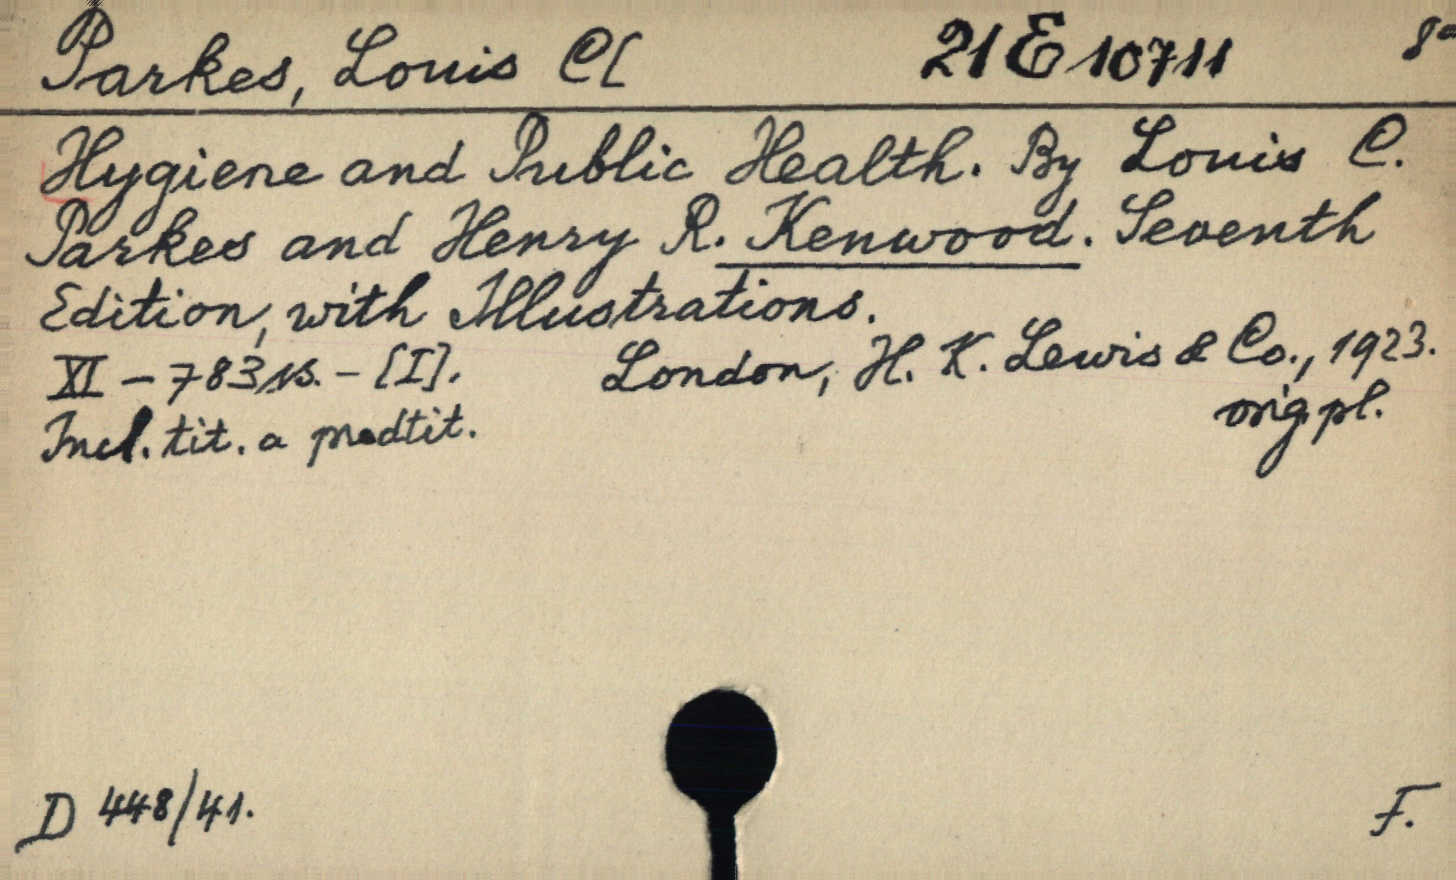 Parkes, Louis C[ 21 E 10711 8°
Hygiene and Public Health. By Louis C.
Parkes and Henry R. Kenwood. Seventh
Edition, with Illustrations.
XI – 783 s. – [I]. London, H. K. Lewis & Co., 1923.
Incl. tit. a predtit. orig. pl.
D 448/41. F.